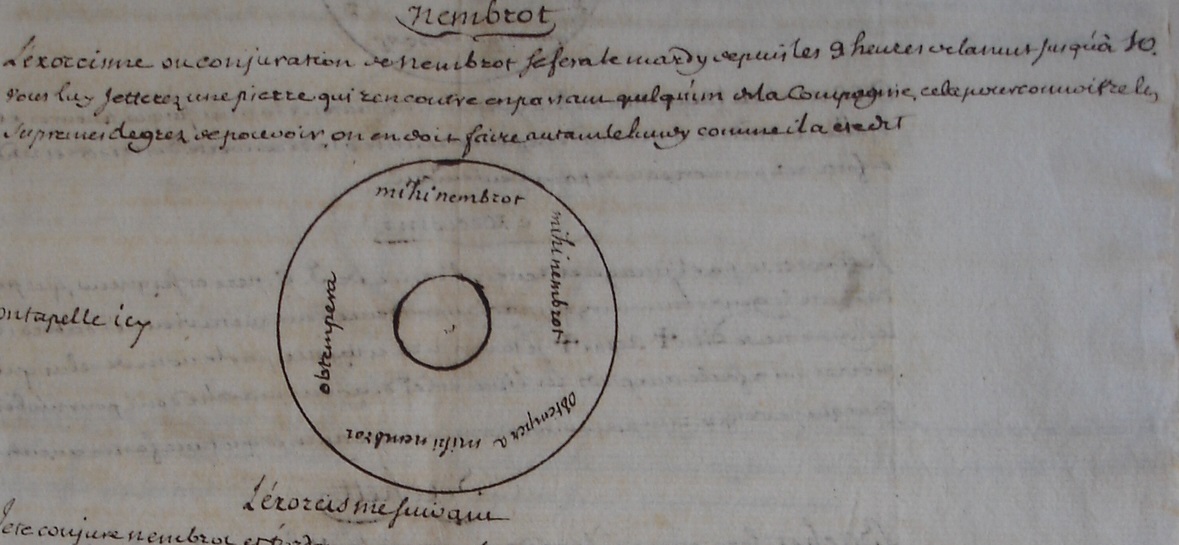 nembrot
L'exorcisme ou conjuration de nembrot se fera le mardy depuis les 9 heures de la nuit jusqu'à 10.
vous luy jetterez une pierre qui rencontre en passant quelqu'un de la Compagnie, cela pour connoistre les
supremes degrez de pouvoir, on en doit faire autant le lundy comme il a été dit
mihi nembrot
mihi nembrot
obtempera
mihi nembrot
obtempera
ontapelle icy
L'éxorcisme suivant
Je te conjure nembrot et